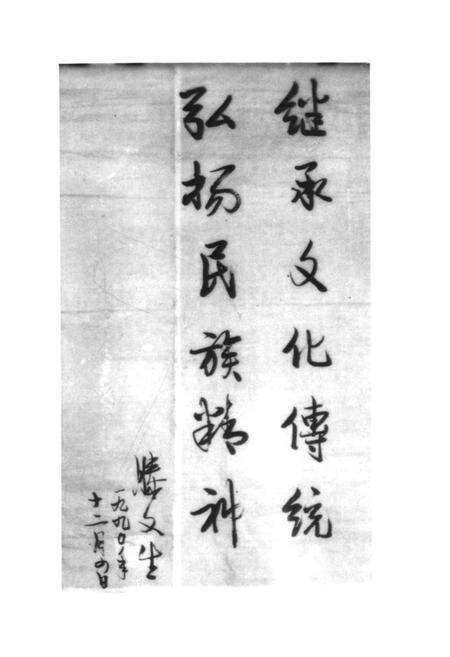 继承文化傳统
弘扬民族精神
滕文生
一九九〇年
十二月四日